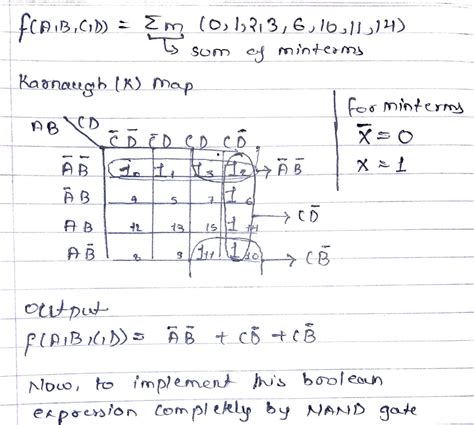 f(A,B,C,D) = Σm (0,1,2,3,6,10,11,14)
↳ sum of minterms
Karnaugh (K) Map
for minterms
x̄ = 0
x = 1
AB \ CD
C̄D̄ C̄D CD CD̄
ĀB̄ 1₀ 1₁ 1₃ 1₂ → ĀB̄
ĀB 4 5 7 1₆
→ CD̄
AB 12 13 15 1₁₄
AB̄ 8 9 1₁₁ 1₁₀ → CB̄
Output
f(A,B,C,D) = ĀB̄ + CD̄ + CB̄
Now, to implement this boolean
expression completely by NAND gate